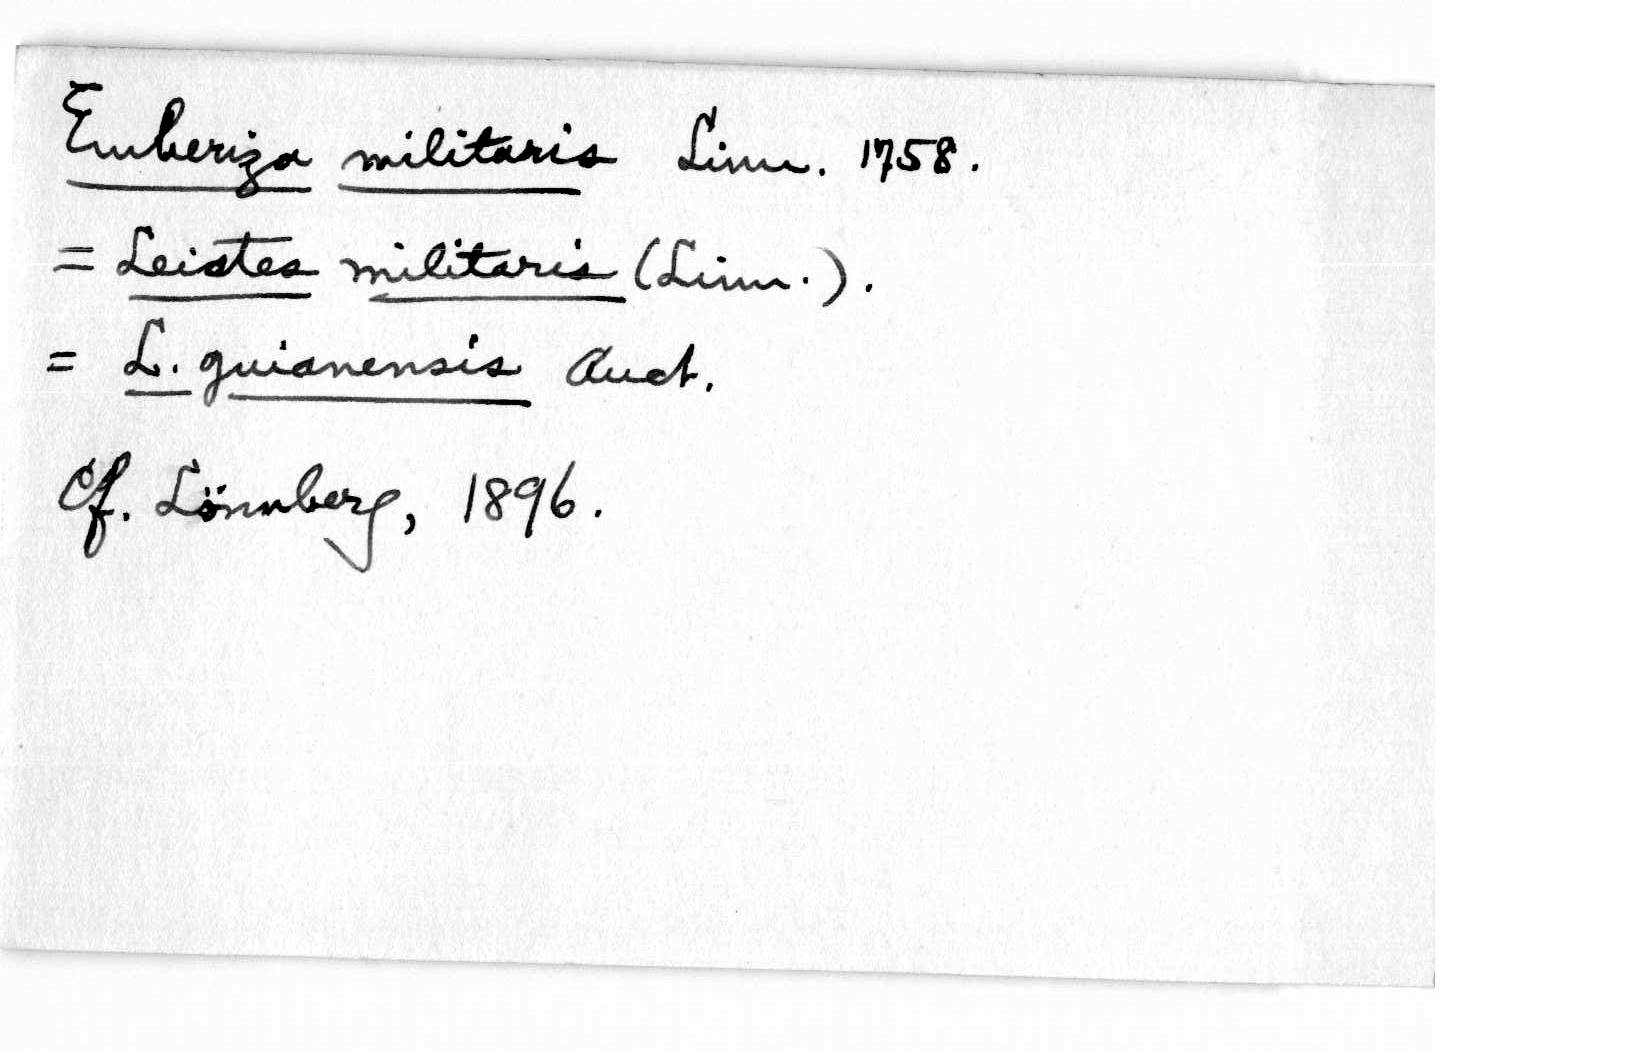 Emberiza militaris Linn. 1758.
= Leistes militaris (Linn.).
= L. guianensis Auct.
Cf. Lönnberg, 1896.